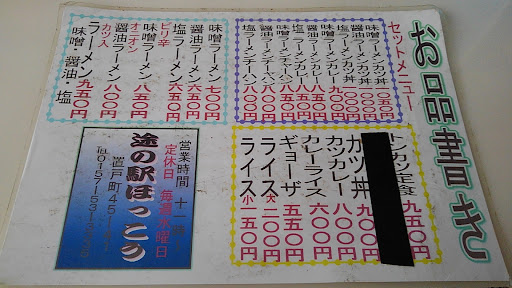 お品書き
セットメニュー
味噌ラーメンカツ丼 一〇五〇円
醤油ラーメンカツ丼 一〇〇〇円
塩ラーメンカツ丼 一〇〇〇円
味噌ラーメンカレー 九〇〇円
醤油ラーメンカレー 八五〇円
塩ラーメンカレー 八五〇円
味噌ラーメンチャーハン
醤油ラーメンチャーハン 八〇〇円
塩ラーメンチャーハン 八〇〇円
味噌ラーメン 七〇〇円
醤油ラーメン 六五〇円
塩ラーメン 六五〇円
ピリ辛
味噌ラーメン 八五〇円
オニオン
醤油ラーメン 八〇〇円
カツ入
ラーメン 九五〇円
味噌・醤油・塩
トンカツ定食 九五〇円
カツ丼
カツカレー 八〇〇円
カレーライス 六〇〇円
ギョーザ 五五〇円
ライス 大 二〇〇円
ライス 小 一五〇円
営業時間
定休日 毎週水曜日
途の駅ぽっこう
置戸町